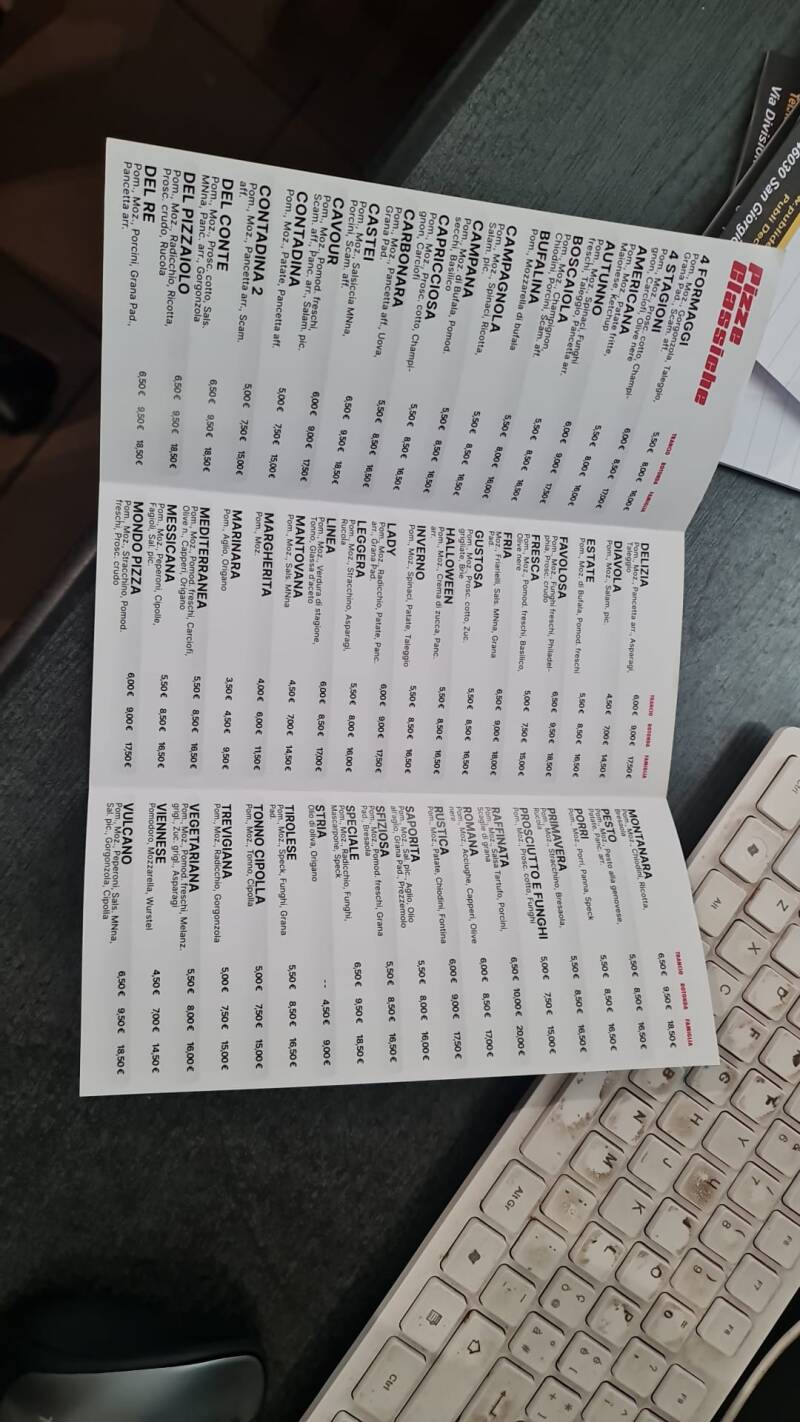 Pizze
Classiche
TRANCIO ROTONDA FAMIGLIA
4 FORMAGGI 5,50€ 8,00€ 16,00€
Pom., Moz., Gorgonzola, Taleggio,
Grana Pad., Scam. aff.
4 STAGIONI 6,00€ 8,50€ 17,00€
Pom., Moz., Prosc. cotto, Champi-
gnon, Carciofi, Olive nere
AMERICANA 5,50€ 8,00€ 16,00€
Pom., Moz., Patate fritte,
Maionese, Ketchup
AUTUNNO 6,00€ 9,00€ 17,50€
Pom., Moz., Spinaci, Funghi
freschi, Taleggio, Pancetta arr.
BOSCAIOLA 5,50€ 8,50€ 16,50€
Pom., Moz., Champignon,
Chiodini, Porcini, Scam. aff.
BUFALINA 5,50€ 8,00€ 16,00€
Pom., Mozzarella di bufala
CAMPAGNOLA 5,50€ 8,50€ 16,50€
Pom., Moz., Spinaci, Ricotta,
Salam. pic.
CAMPANA 5,50€ 8,50€ 16,50€
Pom., Moz. di Bufala, Pomod.
secchi, Basilico
CAPRICCIOSA 5,50€ 8,50€ 16,50€
Pom., Moz., Prosc. cotto, Champi-
gnon, Carciofi
CARBONARA 5,50€ 8,50€ 16,50€
Pom., Moz., Pancetta aff., Uova,
Grana Pad.
CASTEI 6,50€ 9,50€ 18,50€
Pom., Moz., Salsiccia MNna,
Porcini, Scam. aff.
CAVOUR 6,00€ 9,00€ 17,50€
Pom., Moz., Pomod. freschi,
Scam. aff., Panc. arr., Salam. pic.
CONTADINA 5,00€ 7,50€ 15,00€
Pom., Moz., Patate, Pancetta aff.
CONTADINA 2 5,00€ 7,50€ 15,00€
Pom., Moz., Pancetta arr., Scam.
aff.
DEL CONTE 6,50€ 9,50€ 18,50€
Pom., Moz., Prosc. cotto, Sals.
MNna, Panc. arr., Gorgonzola
DEL PIZZAIOLO 6,50€ 9,50€ 18,50€
Pom., Moz., Radicchio, Ricotta,
Prosc. crudo, Rucola
DEL RE 6,50€ 9,50€ 18,50€
Pom., Moz., Porcini, Grana Pad.,
Pancetta arr.
TRANCIO ROTONDA FAMIGLIA
DELIZIA 6,00€ 9,00€ 17,50€
Pom., Moz., Pancetta arr., Asparagi,
Taleggio
DIAVOLA 4,50€ 7,00€ 14,50€
Pom., Moz., Salam. pic.
ESTATE 5,50€ 8,50€ 16,50€
Pom., Moz. di Bufala, Pomod. freschi
FAVOLOSA 6,50€ 9,50€ 18,50€
Pom., Moz., Funghi freschi, Philadel-
phia, Prosc. crudo
FRESCA 5,00€ 7,50€ 15,00€
Pom., Moz., Pomod. freschi, Basilico,
Olive nere
FRIA 6,50€ 9,00€ 18,00€
Moz., Friarielli, Sals. MNna, Grana
Pad.
GUSTOSA 5,50€ 8,50€ 16,50€
Pom., Moz., Prosc. cotto, Zuc.
grigliate, Brie
HALLOWEEN 5,50€ 8,50€ 16,50€
Pom., Moz., Crema di zucca, Panc.
arr.
INVERNO 5,50€ 8,50€ 16,50€
Pom., Moz., Spinaci, Patate, Taleggio
LADY 6,00€ 9,00€ 17,50€
Pom., Moz., Radicchio, Patate, Panc.
arr., Grana Pad.
LEGGERA 5,50€ 8,00€ 16,00€
Pom., Moz., Stracchino, Asparagi,
Rucola
LINEA 6,00€ 8,50€ 17,00€
Pom., Moz., Verdura di stagione,
Tonno, Glassa d'aceto
MANTOVANA 4,50€ 7,00€ 14,50€
Pom., Moz., Sals. MNna
MARGHERITA 4,00€ 6,00€ 11,50€
Pom., Moz.
MARINARA 3,50€ 4,50€ 9,50€
Pom., Aglio, Origano
MEDITERRANEA 5,50€ 8,50€ 16,50€
Pom., Moz., Pomod. freschi, Carciofi,
Olive n., Capperi, Origano
MESSICANA 5,50€ 8,50€ 16,50€
Pom., Moz., Peperoni, Cipolle,
Fagioli, Sal. pic.
MONDO PIZZA 6,00€ 9,00€ 17,50€
Pom., Moz., Stracchino, Pomod.
freschi, Prosc. crudo
TRANCIO ROTONDA FAMIGLIA
MONTANARA 6,50€ 9,50€ 18,50€
Pom., Moz., Chiodini, Ricotta,
Bresaola
PESTO 5,50€ 8,50€ 16,50€
Pom., Moz., Pesto alla genovese,
Patate, Panc. arr.
PORRI 5,50€ 8,50€ 16,50€
Pom., Moz., Porri, Panna, Speck
PRIMAVERA 5,50€ 8,50€ 16,50€
Pom., Moz., Stracchino, Bresaola,
Rucola
PROSCIUTTO E FUNGHI 5,00€ 7,50€ 15,00€
Pom., Moz., Prosc. cotto, Funghi
RAFFINATA 6,50€ 10,00€ 20,00€
Pom., Moz., Salsa Tartufo, Porcini,
Scaglie di grana
ROMANA 6,00€ 8,50€ 17,00€
Pom., Moz., Acciughe, Capperi, Olive
nere
RUSTICA 6,00€ 9,00€ 17,50€
Pom., Moz., Patate, Chiodini, Fontina
SAPORITA 5,50€ 8,00€ 16,00€
Pom., Moz., Sal. pic., Aglio, Olio
all'aglio, Grana Pad., Prezzemolo
SFIZIOSA 5,50€ 8,50€ 16,50€
Pom., Moz., Pomod. freschi, Grana
Pad., Bresaola
SPECIALE 6,50€ 9,50€ 18,50€
Pom., Moz., Radicchio, Funghi,
Mascarpone, Speck
STRIA -- 4,50€ 9,00€
Olio di oliva, Origano
TIROLESE 5,50€ 8,50€ 16,50€
Pom., Moz., Speck, Funghi, Grana
Pad.
TONNO CIPOLLA 5,00€ 7,50€ 15,00€
Pom., Moz., Tonno, Cipolla
TREVIGIANA 5,00€ 7,50€ 15,00€
Pom., Moz., Radicchio, Gorgonzola
VEGETARIANA 5,50€ 8,00€ 16,00€
Pom., Moz., Pomod. freschi, Melanz.
grigl., Zuc. grigl., Asparagi
VIENNESE 4,50€ 7,00€ 14,50€
Pomodoro, Mozzarella, Wurstel
VULCANO 6,50€ 9,50€ 18,50€
Pom., Moz., Peperoni, Sals. MNna,
Sal. pic., Gorgonzola, Cipolla
Via Division
46030 San Giorgio
Alt
Alt Gr
Ctrl
Z
X
C
F
G
H
Y
J
K
M
N
7
8
F6
F7
F8
F9